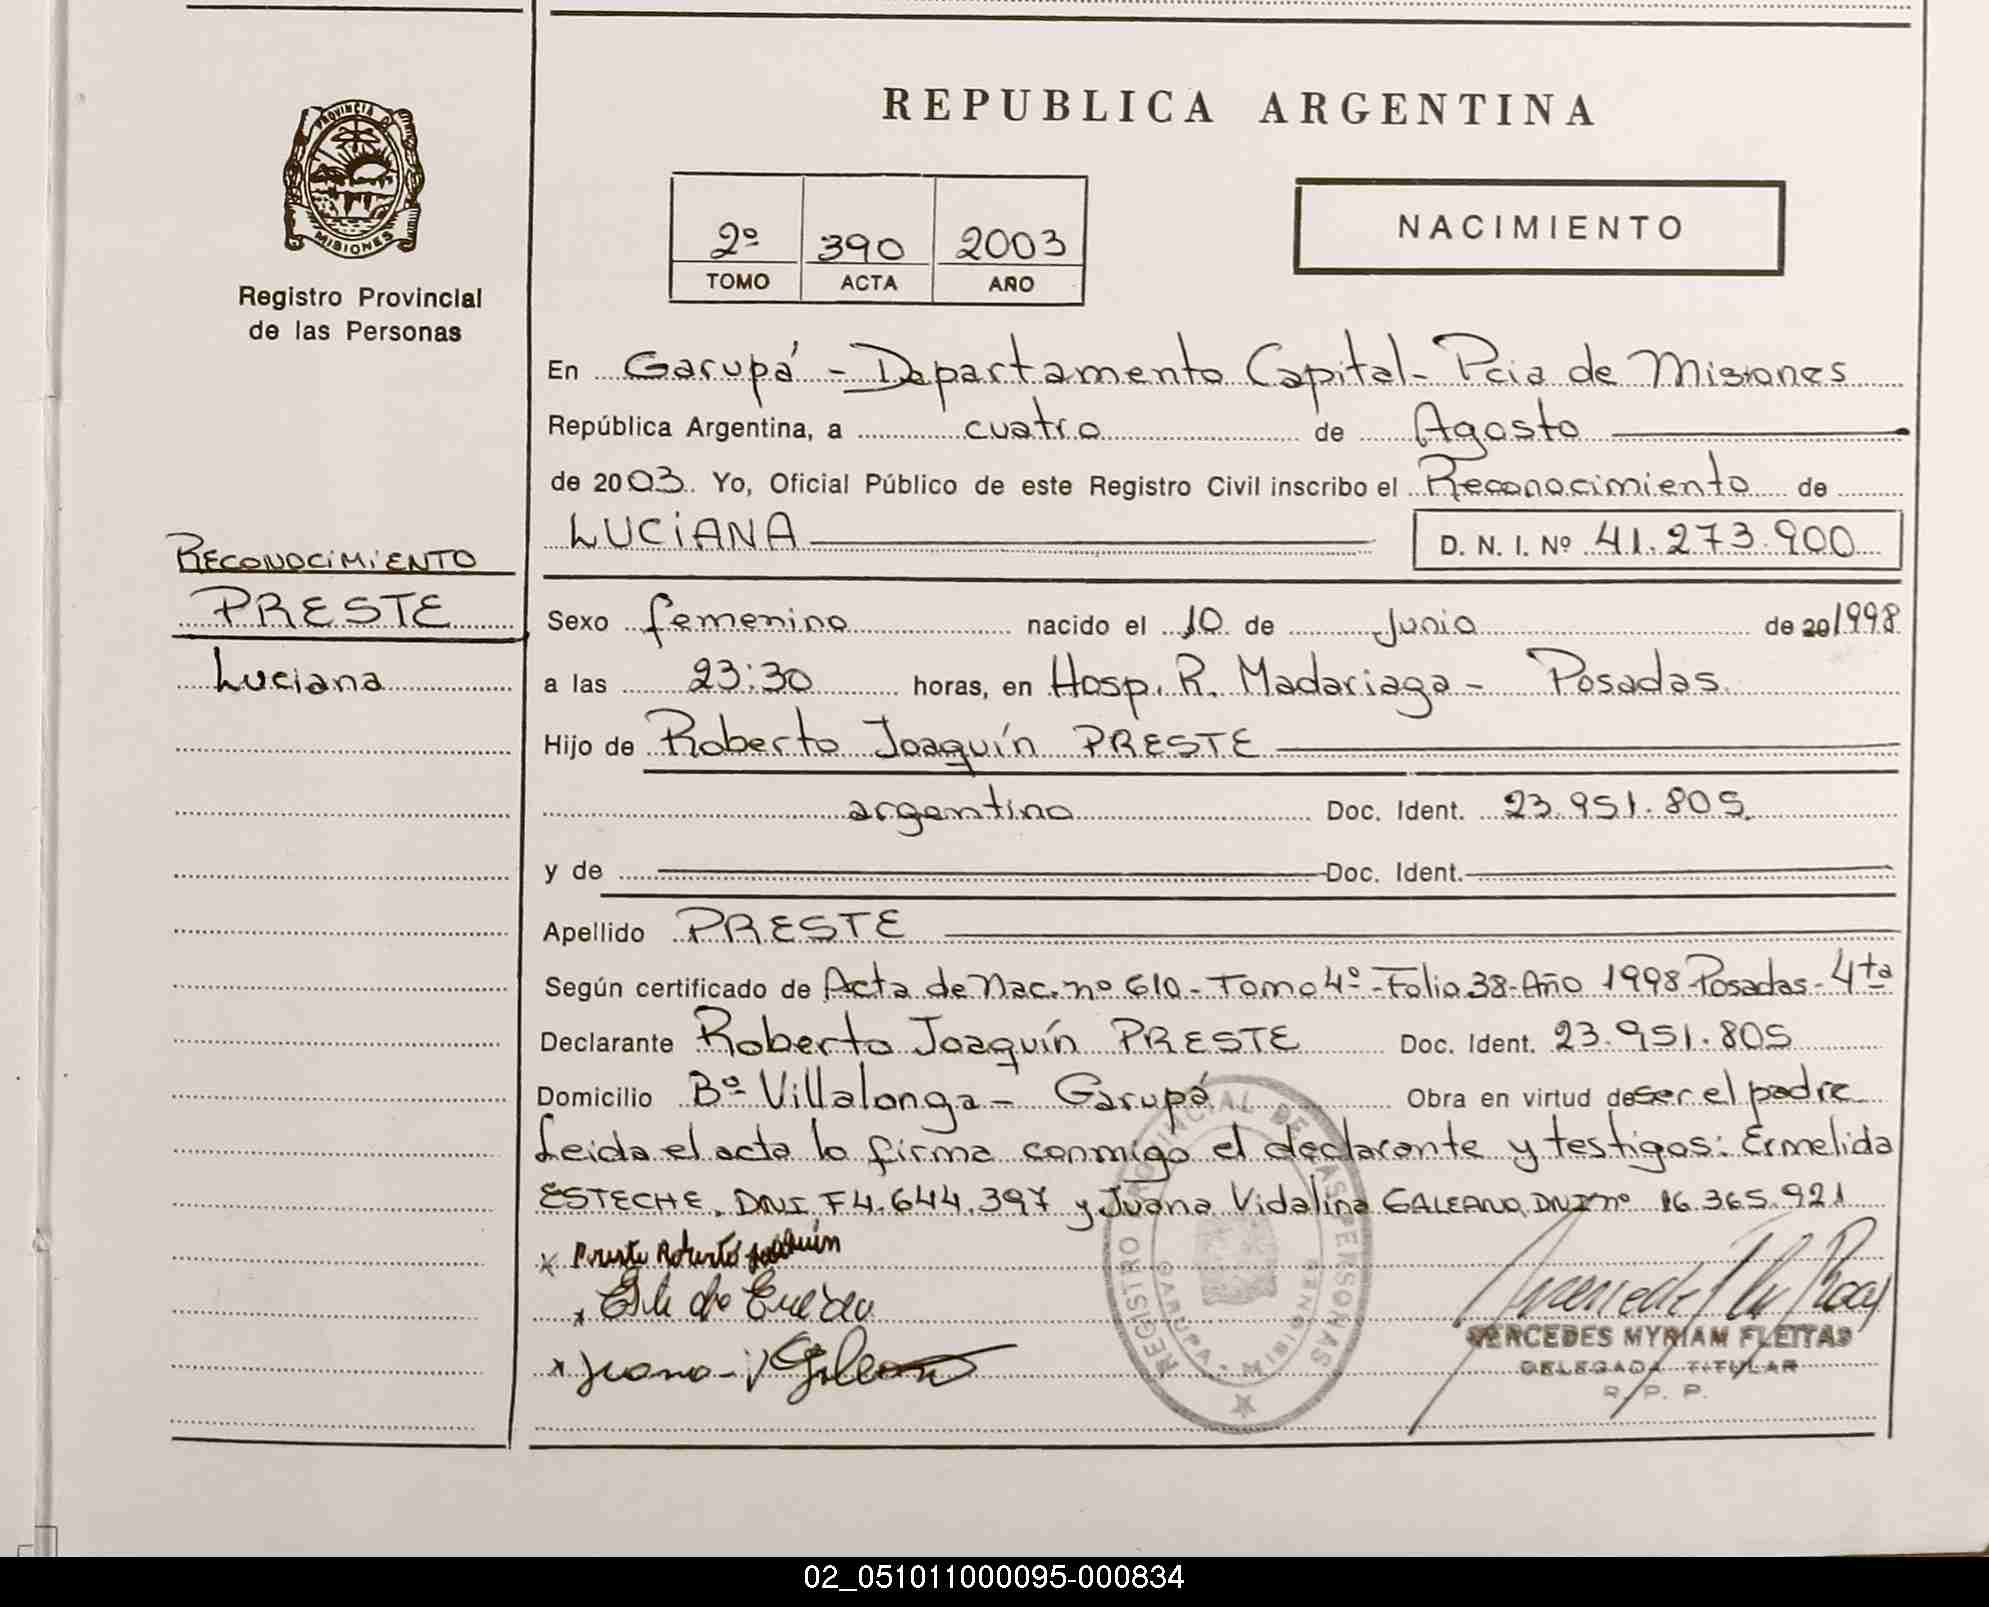 REPUBLICA ARGENTINA
PROVINCIA DE MISIONES
Registro Provincial
de las Personas
2º 390 2003
TOMO ACTA AÑO
NACIMIENTO
En Garupá - Departamento Capital - Pcia de Misiones
República Argentina, a cuatro de Agosto
de 2003. Yo, Oficial Público de este Registro Civil inscribo el Reconocimiento de
LUCIANA D. N. I. Nº 41.273.900
RECONOCIMIENTO
PRESTE
Luciana
Sexo femenino nacido el 10 de Junio de 20 1998
a las 23:30 horas, en Hosp. R. Madariaga - Posadas.
Hijo de Roberto Joaquín PRESTE
argentino Doc. Ident. 23.951.805.
y de Doc. Ident.
Apellido PRESTE
Según certificado de Acta de Nac. nº 610 - Tomo 4º - Folio 38 - Año 1998 Posadas - 4ta
Declarante Roberto Joaquín PRESTE Doc. Ident. 23.951.805
Domicilio Bº Villalonga - Garupá Obra en virtud de ser el padre
Leida el acta la firma conmigo el declarante y testigos: Ermelida
ESTECHE, DNI F4.644.397 y Juana Vidalina GALEANO, DNI nº 16.365.921
x Preste Roberto Joaquín
x Juana V Galeano
REGISTRO PROVINCIAL DE LAS PERSONAS
GARUPA - MISIONES
MERCEDES MYRIAM FLEITAS
DELEGADA TITULAR
R. P. P.
02_051011000095-000834